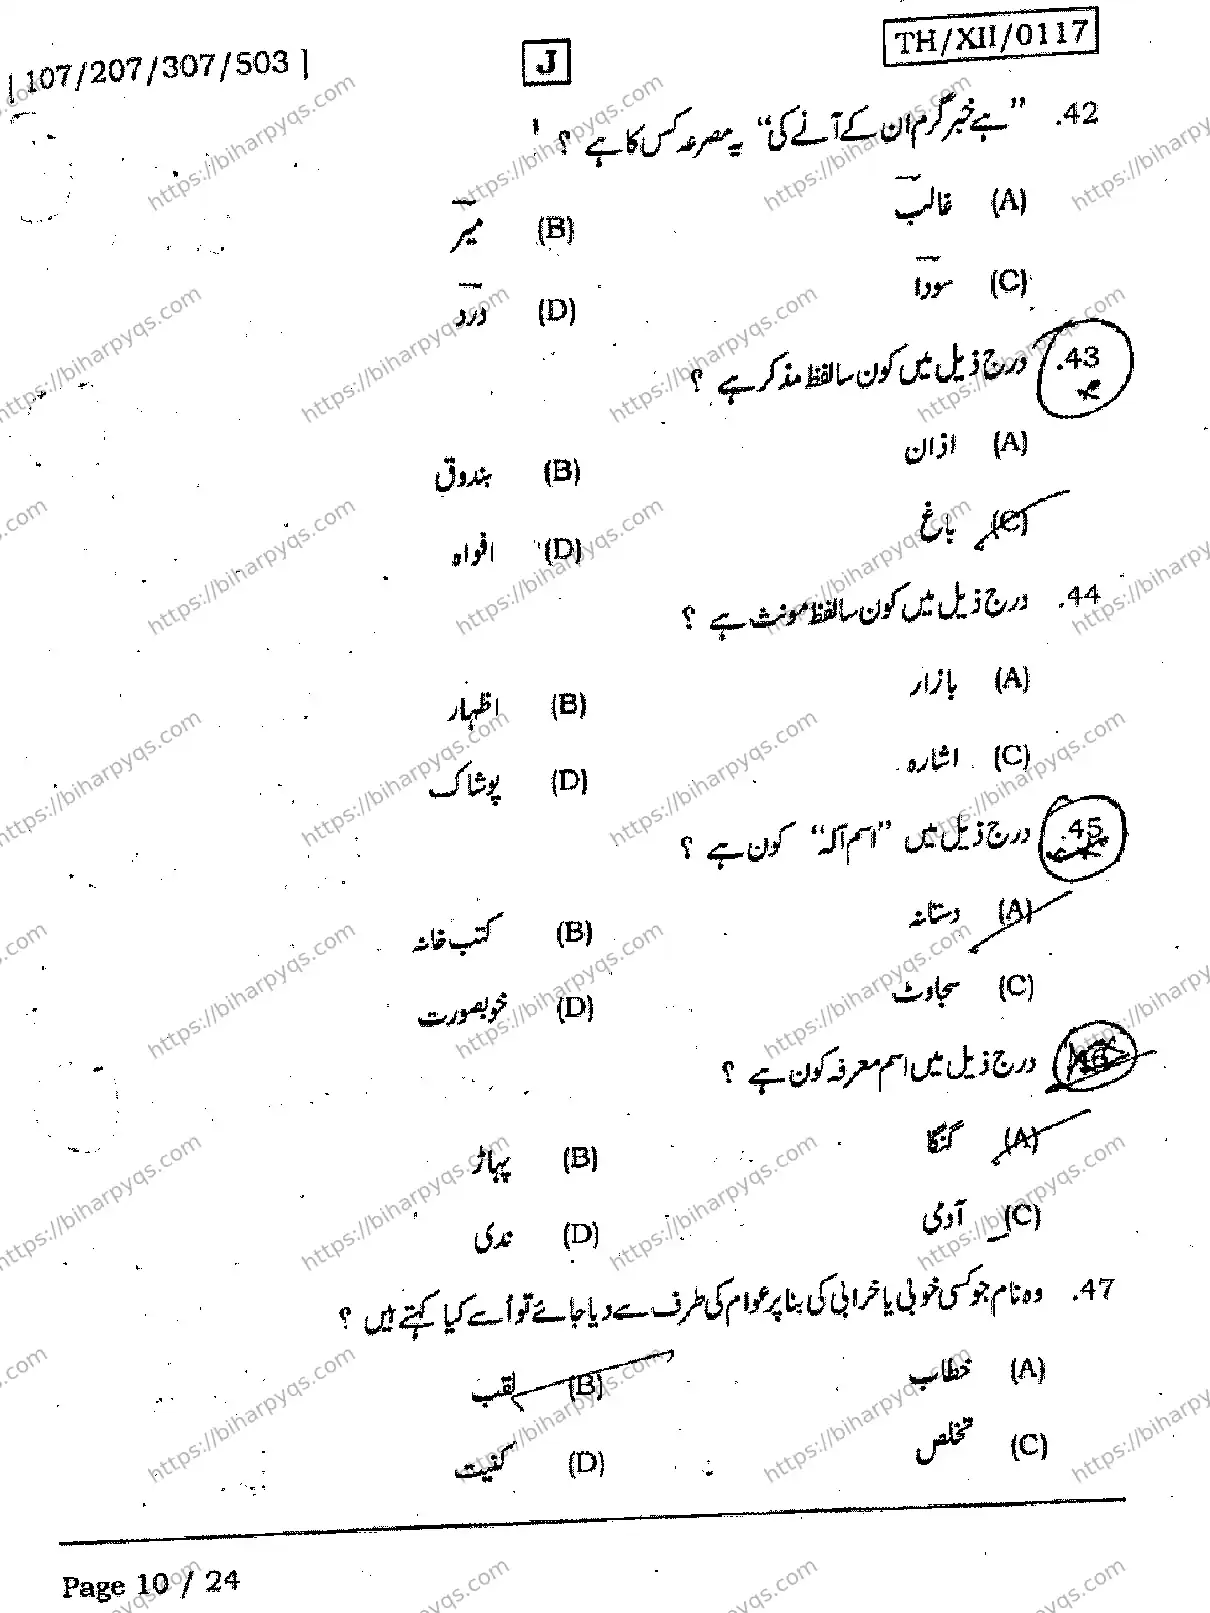 | 107/207/307/503 |
J
TH/XII/0117
42. ”ہے خبر گرم ان کے آنے کی“ یہ مصرعہ کس کا ہے ؟
(A) غالب
(B) میر
(C) سودا
(D) درد
43. درج ذیل میں کون سا لفظ مذکر ہے ؟
(A) اذان
(B) بندوق
(C) باغ
(D) افواہ
44. درج ذیل میں کون سا لفظ مونث ہے ؟
(A) بازار
(B) اظہار
(C) اشارہ
(D) پوشاک
45. درج ذیل میں ”اسم آلہ“ کون ہے ؟
(A) دستانہ
(B) کتب خانہ
(C) سجاوٹ
(D) خوبصورت
درج ذیل میں اسم معرفہ کون ہے ؟
(A) گنگا
(B) پہاڑ
(C) آدمی
(D) ندی
47. وہ نام جو کسی خوبی یا خرابی کی بنا پر عوام کی طرف سے دیا جائے تو اُسے کیا کہتے ہیں ؟
(A) خطاب
(B) لقب
(C) تخلص
(D) کنیت
Page 10 / 24
https://biharpyqs.com